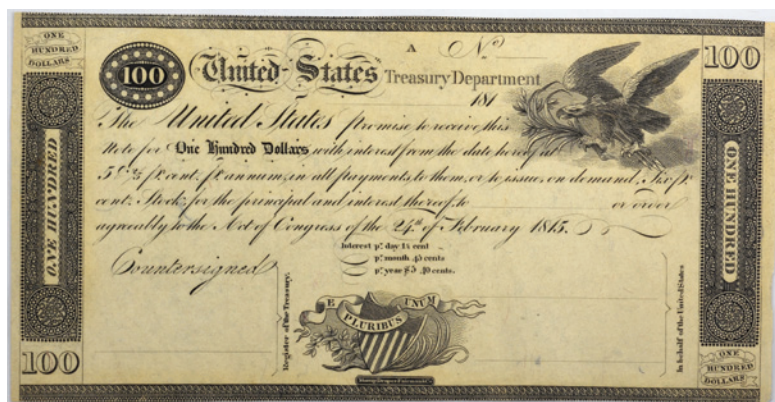 ONE HUNDRED DOLLARS
100
United States
A
No
Treasury Department
181
100
The United States promise to receive this
Note for One Hundred Dollars with interest from the date hereof at
5 2/5 pr cent. pr annum, in all payments to them, or to issue, on demand, Six pr
cent. Stock, for the principal and interest thereof, to or order
agreeably to the Act of Congress of the 24th of February 1815.
Interest pr day 1½ cent
pr month 45 cents
pr year $5 40 cents.
Countersigned
ONE HUNDRED
ONE HUNDRED
Register of the Treasury.
In behalf of the United States
E PLURIBUS UNUM
100
ONE HUNDRED DOLLARS